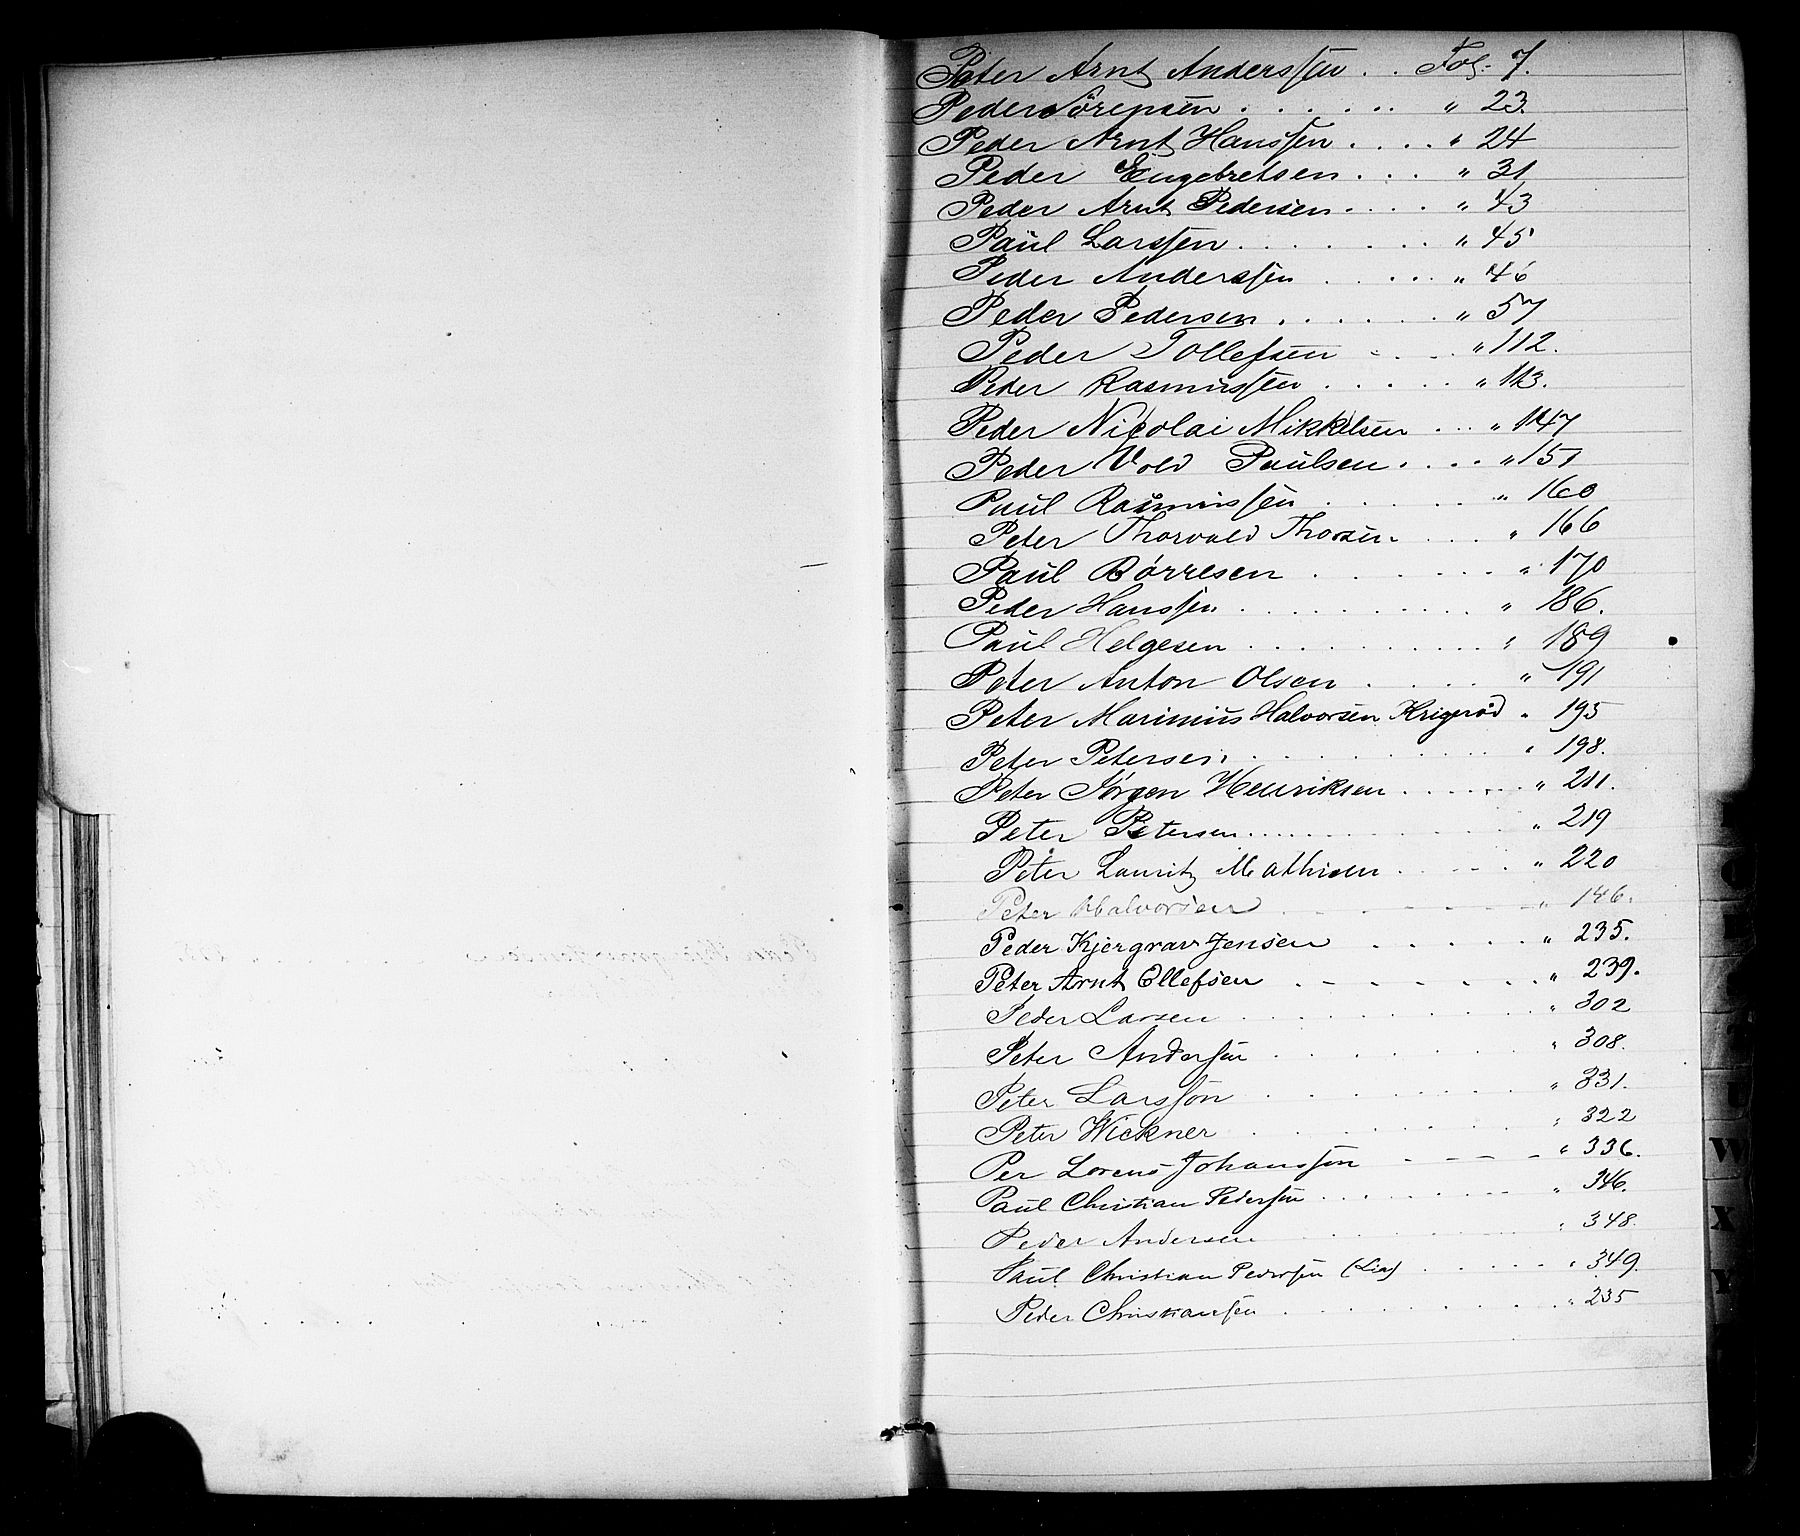 Peter Arnt Anderssen . . Fol. 7.
Peder Sörensen . . . . . . " 23.
Peder Arnt Hanssen . . . . " 24
Peder Engebretsen . . . " 31
Peder Arnt Pedersen . . . . " 43
Paul Larssen . . . . . . . " 45
Peder Anderssen . . . . . " 46
Peder Pedersen . . . . . . " 57
Peder Tollefsen - . . . " 112.
Peder Rasmussen . . . . . " 113.
Peder Nicolai Mikkelsen . . . " 147
Peder Vold Paulsen . . . . " 151
Paul Rasmussen . . . . . " 160
Peter Thorvald Thorsen . . . " 166
Paul Börresen . . . . . . . " 170
Peder Hanssen . . . . . . . . . " 186.
Paul Helgesen . . . . . . . . . . " 189
Peter Anton Olsen . . . . . " 191
Peter Marinius Halvorsen Krigeröd " 195
Peter Petersen . . . . . . . . " 198.
Peter Jörgen Henriksen . . . . . . " 211.
Peter Petersen . . . . . . . . . " 219
Peter Lauritz Mathisen - - - - - " 220
Peter Halvorsen - - - - - - " 146.
Peder Kjergrav Jensen . . . . . " 235.
Peter Arnt Ellefsen - - - - - - . " 239.
Peder Larsen . . . . . . . . . . " 302
Peter Anderssen . . . . . . . " 308.
Peter Larsson . . . . . . . . " 331.
Peter Wickner . . . . . . . . " 322
Per Lorens Johansson - - - - " 336.
Paul Christian Pedersen . . . . . . - - " 346.
Peder Andersen . . . . . . . " 348.
Paul Christian Pedersen (Lia) . . . . . " 349.
Peder Christiansen . . . . . . . . . " 235
W
X
Y